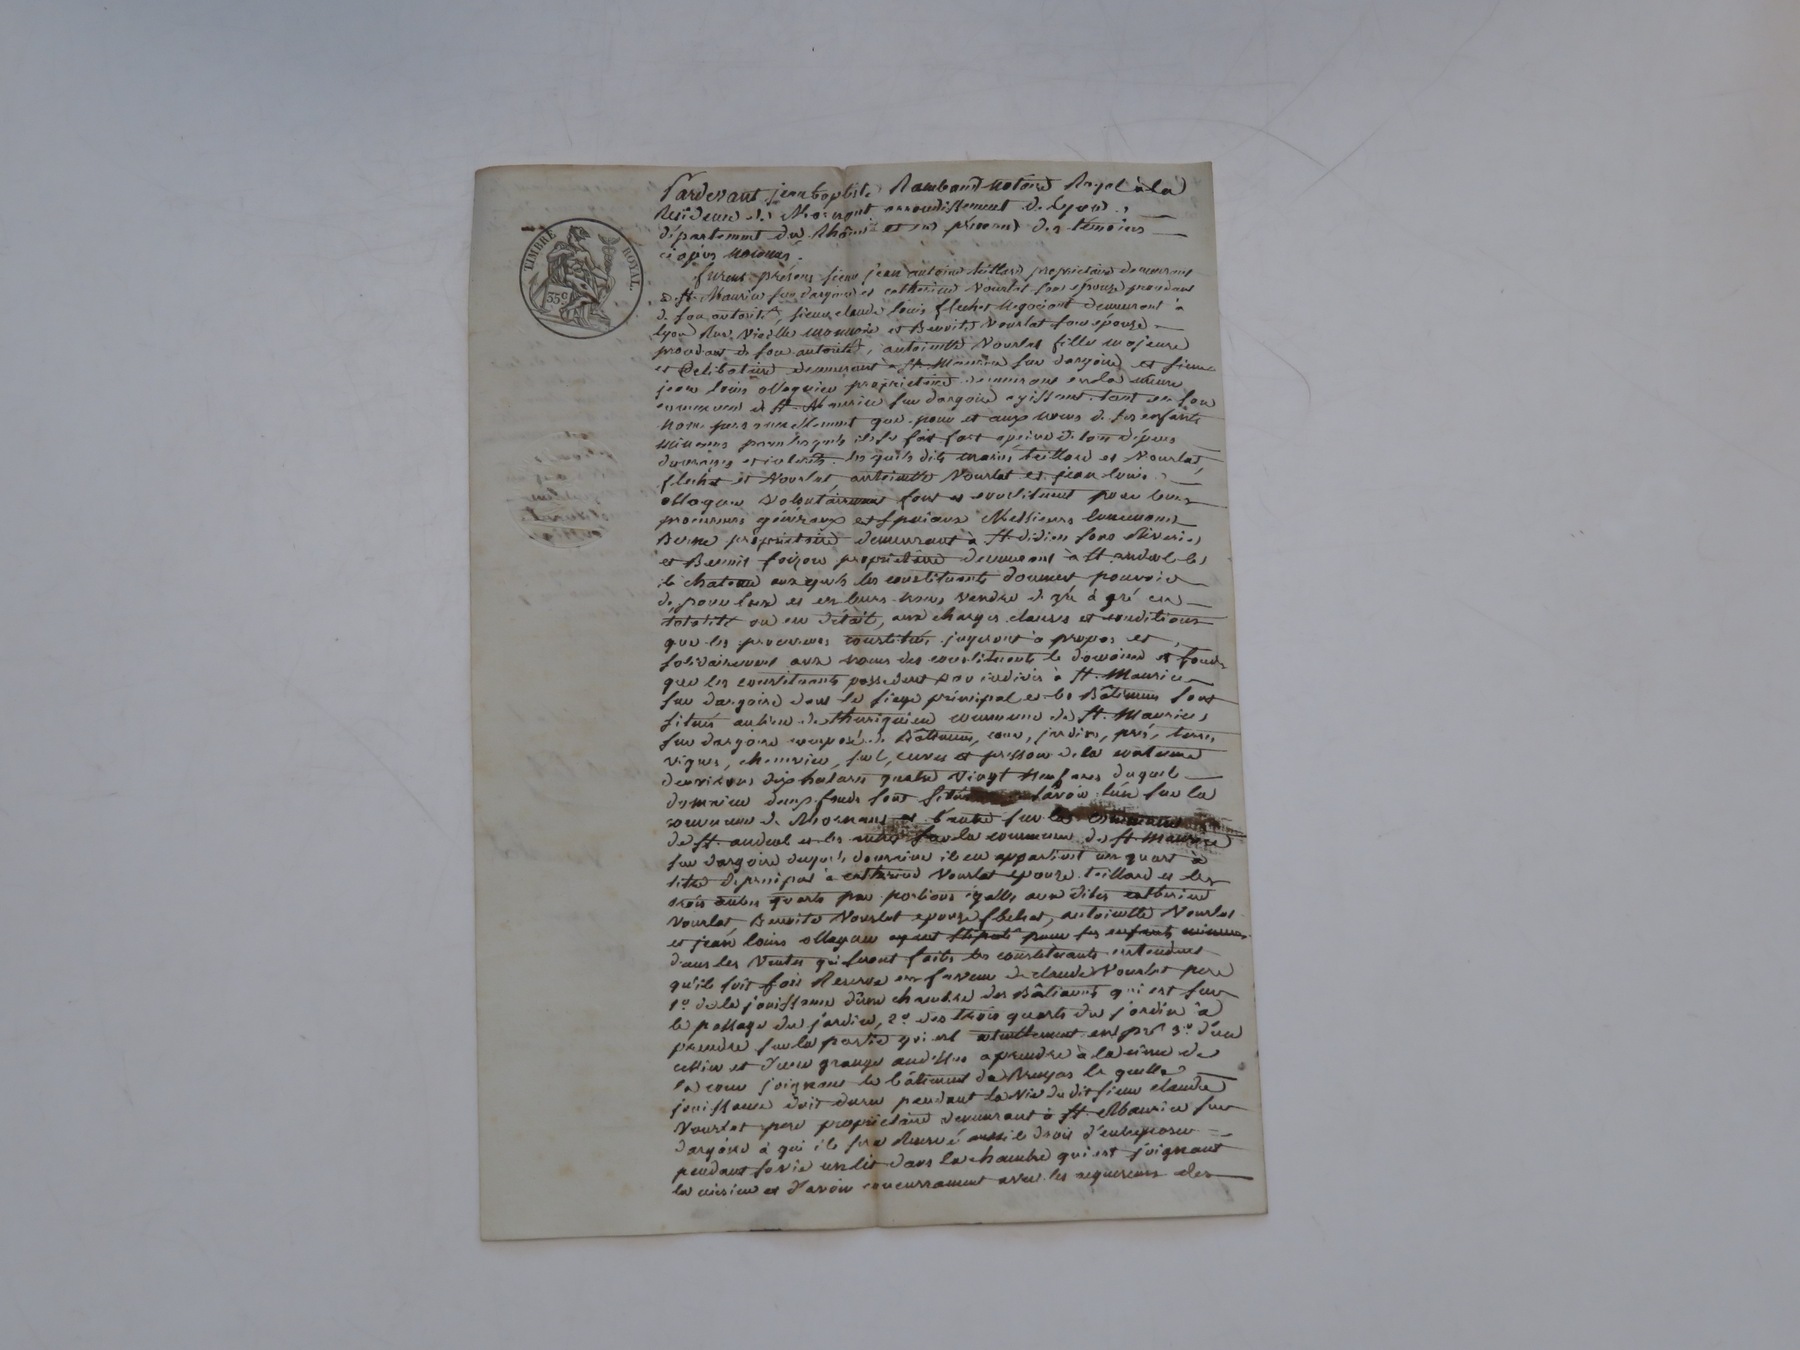 TIMBRE ROYAL.
35 c
Pardevant jean baptiste Rambaud notaire Royal à la
Résidence de Mornant arrondissement de Lyon,
département du Rhône et en présence des témoins
ci après nommés.
furent présens sieur jean antoine teillard propriétaire demeurant
à St. Maurice sur dargoire et catherine Vourlat son épouse procédant
de son autorité, sieur claude louis flechet négociant demeurant à
Lyon Rue Vieille monnoie et Benoite Vourlat son épouse
procédant de son autorité, antoinette Vourlat fille majeure
et Celibataire demeurant à St. Maurice sur dargoire et sieur
jean louis ollagnier propriétaire demeurant en la même
commune de St. Maurice sur dargoire agissant tant en son
nom personnellement que pour et aux noms de ses enfants
mineurs pour lesquels il se fait fort à peine de tous dépens
dommages et intérêts. lesquels dits mariés teillard et Vourlat,
flechet et Vourlat, antoinette Vourlat et jean louis
ollagnier Volontairement font et constituent pour leurs
procureurs généraux et spéciaux Messieurs
propriétaire demeurant à St didier sous Riverie
et Benoit propriétaire demeurant à St andeol le
le chateau auxquels les constituants donnent pouvoir
de pour eux et en leurs noms Vendre de gré à gré en
totalité ou en détail, aux charges clauses et conditions
que les procureurs constitués jugeront à propos et
solidairement aux noms des constituants le domaine et fonds
que les constituants possèdent par indivis à St. Maurice
sur dargoire dont le siège principal et les Bâtiments sont
situés au lieu de commune de St. Maurice
sur dargoire composé de Bâtiments, cour, jardin, pré, terre,
vignes, cuves et pressoir de la contenue
d'environ dix hectares quatre Vingt neuf ares duquel
domaine deux fonds sont situés savoir l'un sur la
commune de Mornant et l'autre sur la commune
de St. andeol et les autres sur la commune de St Maurice
sur dargoire duquel domaine il en appartient un quart à
titre de à catherine Vourlat epouse teillard et les
trois autres quarts par portions égales aux dites catherine
Vourlat, Benoite Vourlat epouse flechet, antoinette Vourlat
et jean louis ollagnier pour ses enfants mineurs.
dans les Ventes qui seront faites les constituants entendent
qu'il soit fait Reserve en faveur de claude Vourlat père
1° de la jouissance d'une chambre des Bâtiments qui est sur
le passage du jardin, 2° des trois quarts du jardin à
prendre sur la partie qui est actuellement en pré 3° d'un
cellier et d'une grange au dessus à prendre à la cime de
la cour joignant le bâtiment de la quelle
jouissance doit durer pendant la Vie du dit sieur claude
Vourlat père propriétaire demeurant à St. Maurice sur
dargoire à qui il sera Reservé aussi le droit d'entreposer
pendant sa vie un lit dans la chambre qui est joignant
la cuisine et d'avoir concurramment avec les acquéreurs des